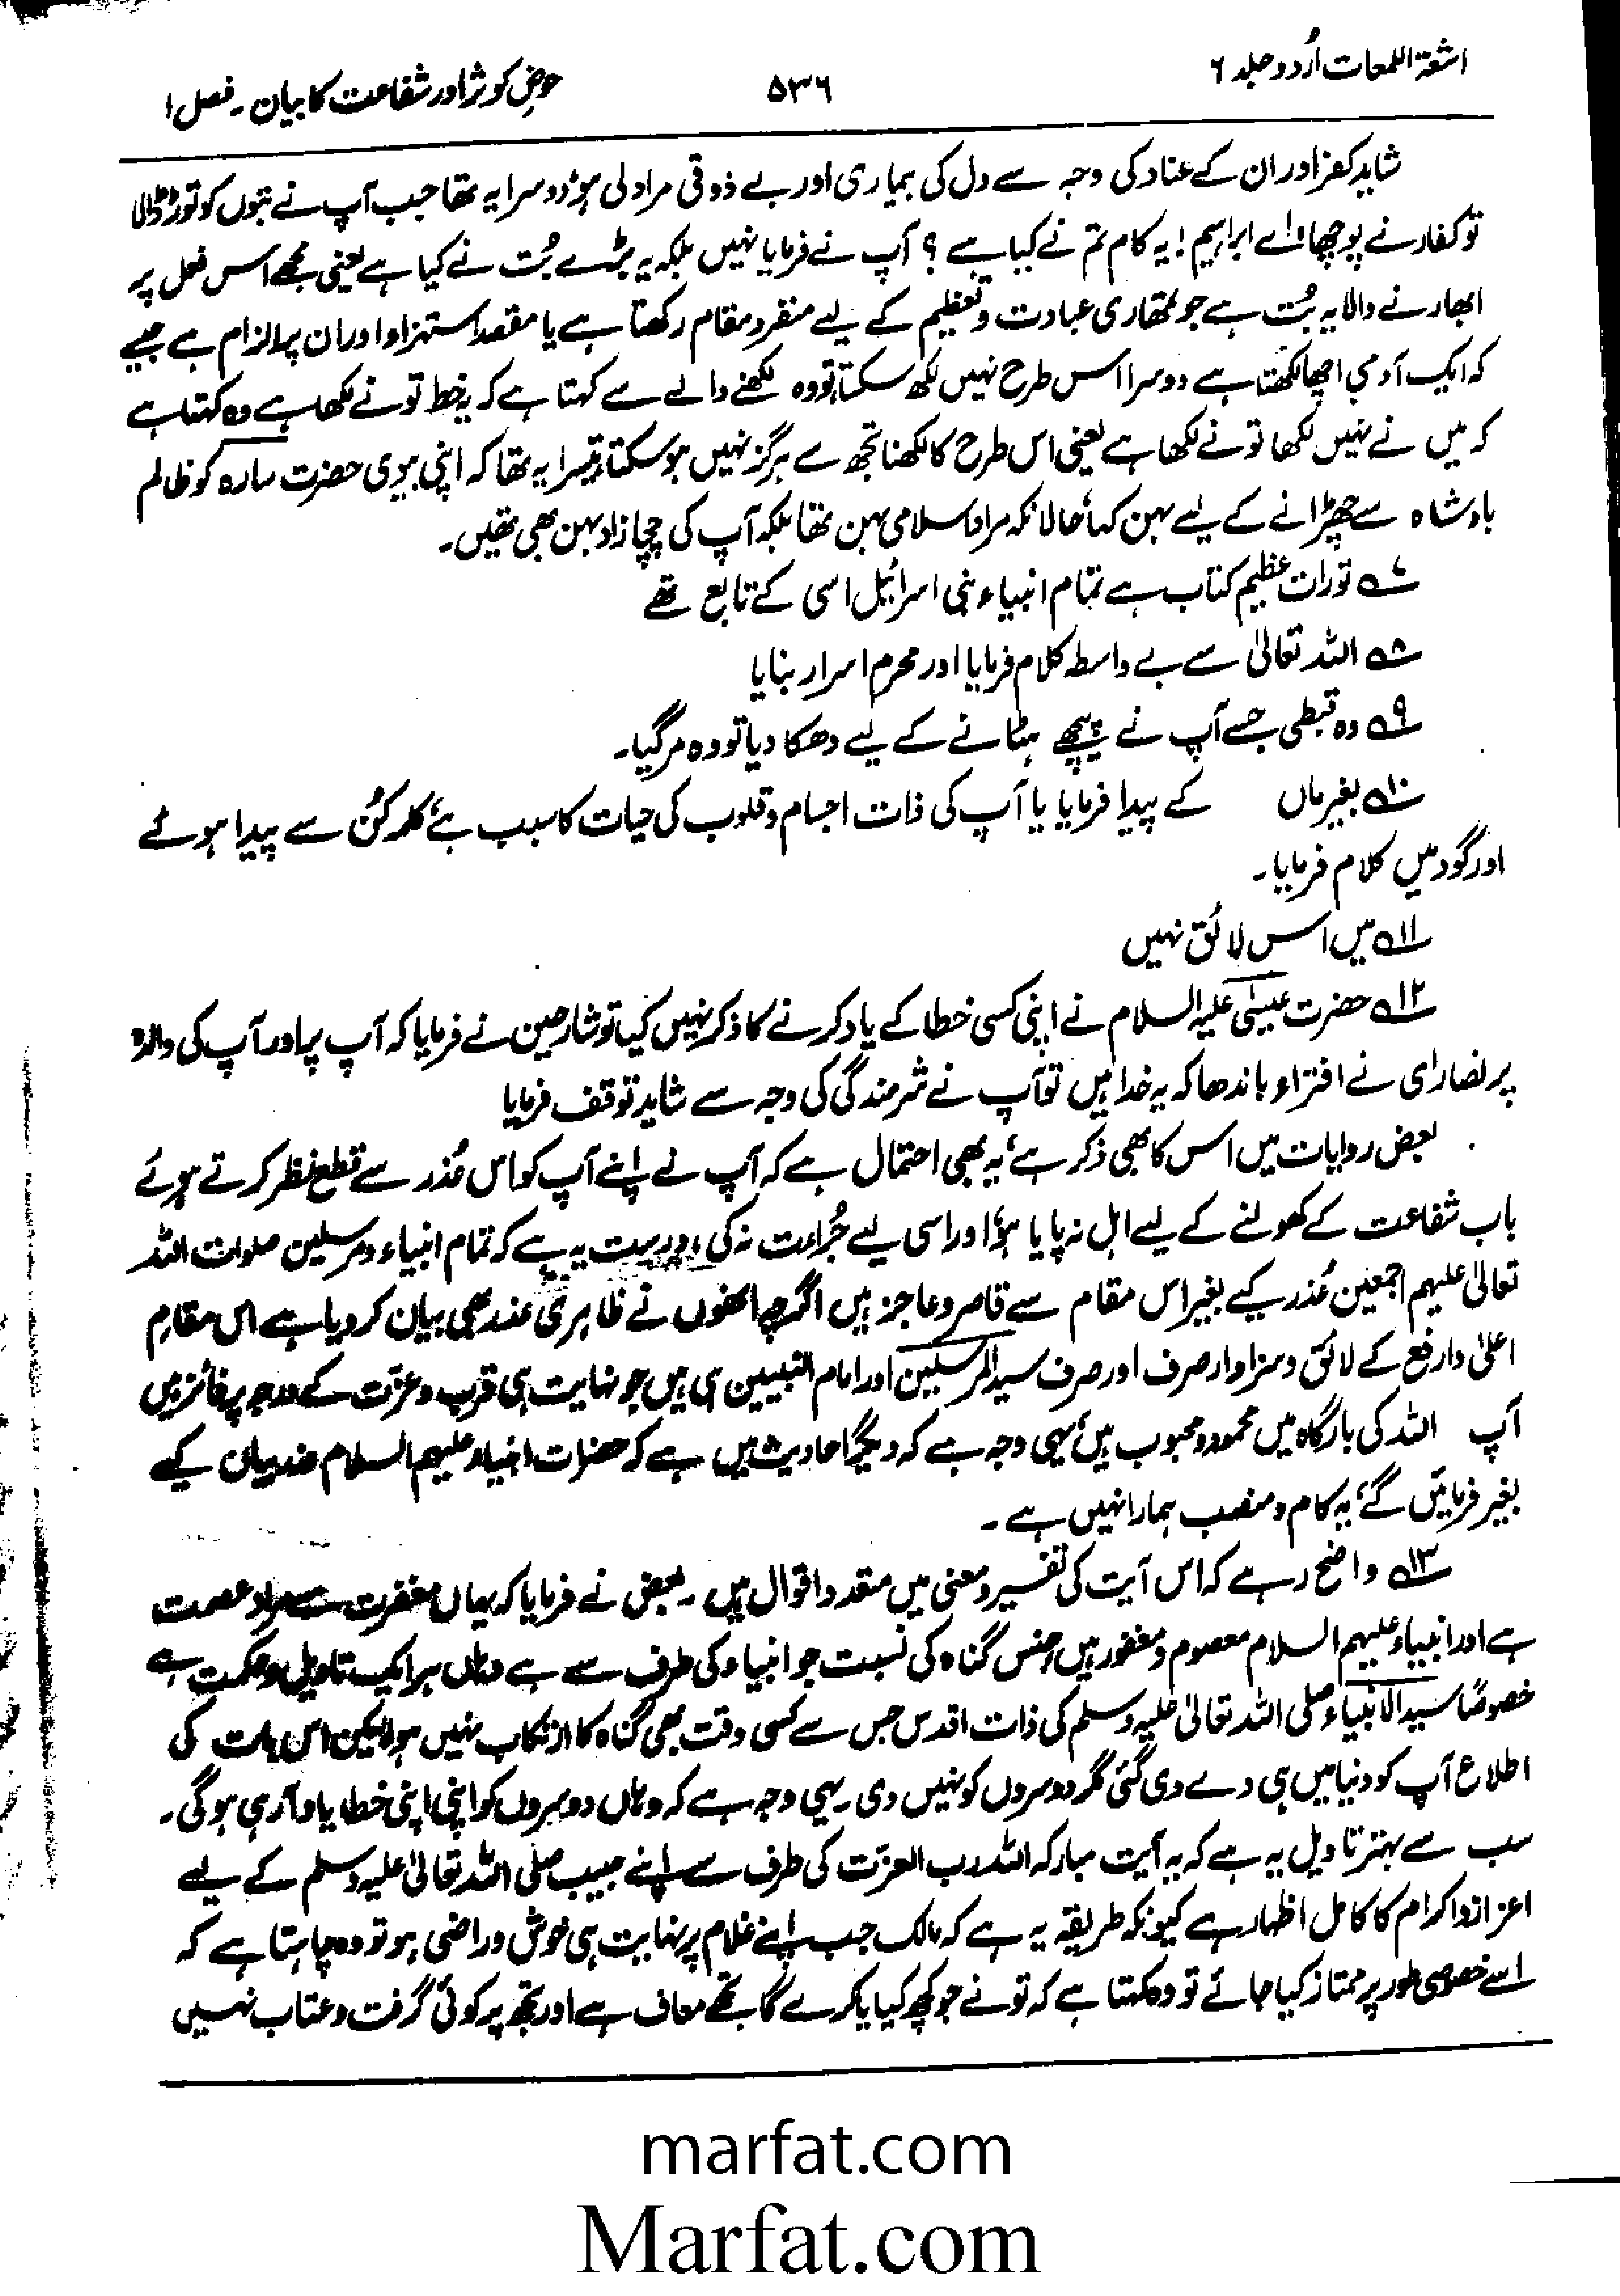 اشعۃ اللمعات اُردو جلد ۶
۵۳۶
حوضِ کوثر اور شفاعت کا بیان۔ فصل ۱
شاید کفر اور ان کے عناد کی وجہ سے دل کی بیماری اور بے ذوقی مراد لی ہو، دوسرا یہ تھا جب آپ نے بتوں کو توڑ ڈالا
تو کفار نے پوچھا، اے ابراہیم! یہ کام تم نے کیا ہے؟ آپ نے فرمایا نہیں بلکہ یہ بڑے بُت نے کیا ہے یعنی مجھے اس فعل پر
ابھارنے والا یہ بُت ہے جو تمھاری عبادت و تعظیم کے لیے منفرد مقام رکھتا ہے یا مقصد استہزاء اور ان پر الزام ہے جیسے
کہ ایک آدمی اچھا لکھتا ہے دوسرا اس طرح نہیں لکھ سکتا تو وہ لکھنے والے سے کہتا ہے کہ یہ خط تو نے لکھا ہے وہ کہتا ہے
کہ میں نے نہیں لکھا تو نے لکھا ہے یعنی اس طرح کا لکھنا تجھ سے ہرگز نہیں ہو سکتا، تیسرا یہ تھا کہ اپنی بیوی حضرت سارہ کو ظالم
بادشاہ سے چھڑانے کے لیے بہن کہا، حالانکہ مراد اسلامی بہن تھا بلکہ آپ کی چچا زاد بہن بھی تھیں۔
۷ تورات عظیم کتاب ہے تمام انبیاء بنی اسرائیل اسی کے تابع تھے
۸ اللہ تعالیٰ سے بے واسطہ کلام فرمایا اور محرم اسرار بنایا
۹ وہ قبطی جسے آپ نے پیچھے ہٹانے کے لیے دھکا دیا تو وہ مر گیا۔
۱۰ بغیر ماں کے پیدا فرمایا یا آپ کی ذات اجسام و قلوب کی حیات کا سبب ہے، کلمہ کُن سے پیدا ہوئے
اور گود میں کلام فرمایا۔
۱۱ میں اس لائق نہیں
۱۲ حضرت عیسیٰ علیہ السلام نے اپنی کسی خطا کے یاد کرنے کا ذکر نہیں کیا تو شارحین نے فرمایا کہ آپ پر اور آپ کی والدہ
پر نصارای نے افتراء باندھا کہ یہ خدا ہیں تو آپ نے شرمندگی کی وجہ سے شاید توقف فرمایا
بعض روایات میں اس کا بھی ذکر ہے، یہ بھی احتمال ہے کہ آپ نے اپنے آپ کو اس عُذر سے قطع نظر کرتے ہوئے
باب شفاعت کے کھولنے کے لیے اہل نہ پایا ہو، اور اسی لیے جُراءت نہ کی، درست یہ ہے کہ تمام انبیاء و مرسلین صلوات اللہ
تعالیٰ علیہم اجمعین عُذر کے بغیر اس مقام سے قاصر و عاجز ہیں اگرچہ انھوں نے ظاہری عذر بھی بیان کر دیا ہے اس مقامِ
اعلیٰ و ارفع کے لائق و سزاوار صرف اور صرف سید المرسلین اور امام النبیین ہی ہیں جو نہایت ہی قرب و عزّت کے درجہ پر فائز ہیں
آپ اللہ کی بارگاہ میں محمود و محبوب ہیں، یہی وجہ ہے کہ دیگر احادیث میں ہے کہ حضرات انبیاء علیہم السلام عذر بیان کیے
بغیر فرمائیں گے، یہ کام و منصب ہمارا نہیں ہے۔
۱۳ واضح رہے کہ اس آیت کی تفسیر و معنی میں متعدد اقوال ہیں۔ بعض نے فرمایا کہ یہاں مغفرت سے مراد عصمت
ہے اور انبیاء علیہم السلام معصوم و مغفور ہیں، جنس گناہ کی نسبت جو انبیاء کی طرف سے ہے وہاں ہر ایک تاویل و حکمت ہے
خصوصًا سید الانبیاء صلی اللہ تعالیٰ علیہ وسلم کی ذات اقدس جس سے کسی وقت بھی گناہ کا ارتکاب نہیں ہوا لیکن اس بات کی
اطلاع آپ کو دنیا میں ہی دے دی گئی مگر دوسروں کو نہیں دی۔ یہی وجہ ہے کہ وہاں دوسروں کو اپنی اپنی خطا یاد آ رہی ہوگی۔
سب سے بہتر تاویل یہ ہے کہ یہ آیت مبارکہ اللہ رب العزّت کی طرف سے اپنے حبیب صلی اللہ تعالیٰ علیہ وسلم کے لیے
اعزاز و اکرام کا کامل اظہار ہے کیونکہ طریقہ یہ ہے کہ مالک جب اپنے غلام پر نہایت ہی خوش و راضی ہو تو وہ چاہتا ہے کہ
اسے خصوصی طور پر ممتاز کیا جائے تو وہ کہتا ہے کہ تو نے جو کچھ کیا یا کرے گا تجھے معاف ہے اور تجھ پر کوئی گرفت و عتاب نہیں
marfat.com
Marfat.com